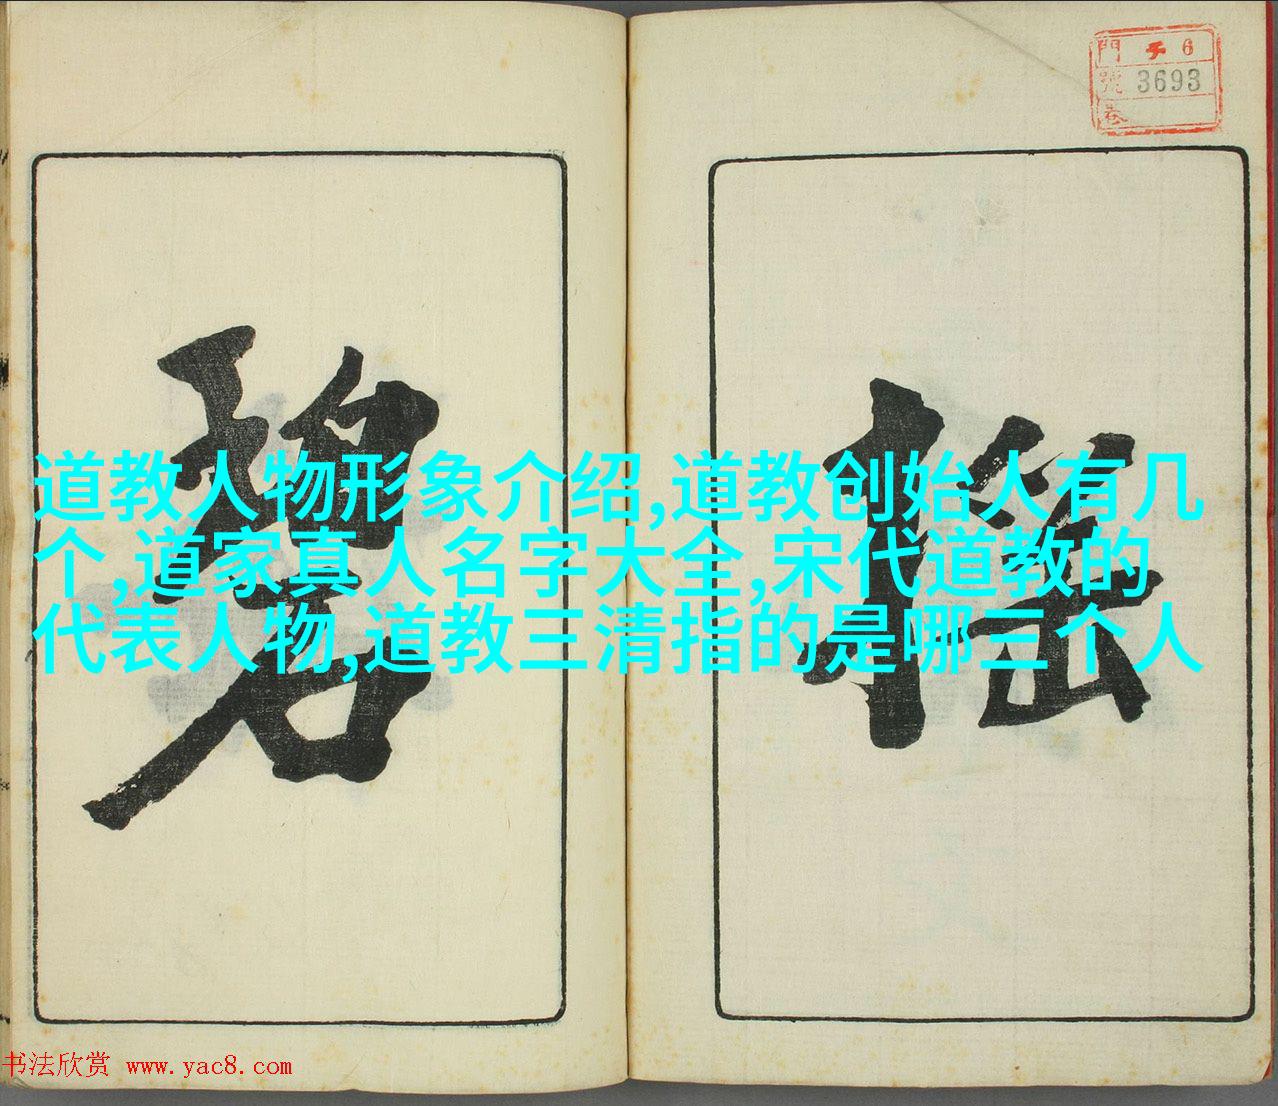 門 チ 6
號 3693
卷
搖
碧
道教人物形象介绍,道教创始人有几
个,道家真人名字大全,宋代道教的
代表人物,道教三清指的是哪三个人
书法欣赏 www.yac8.com